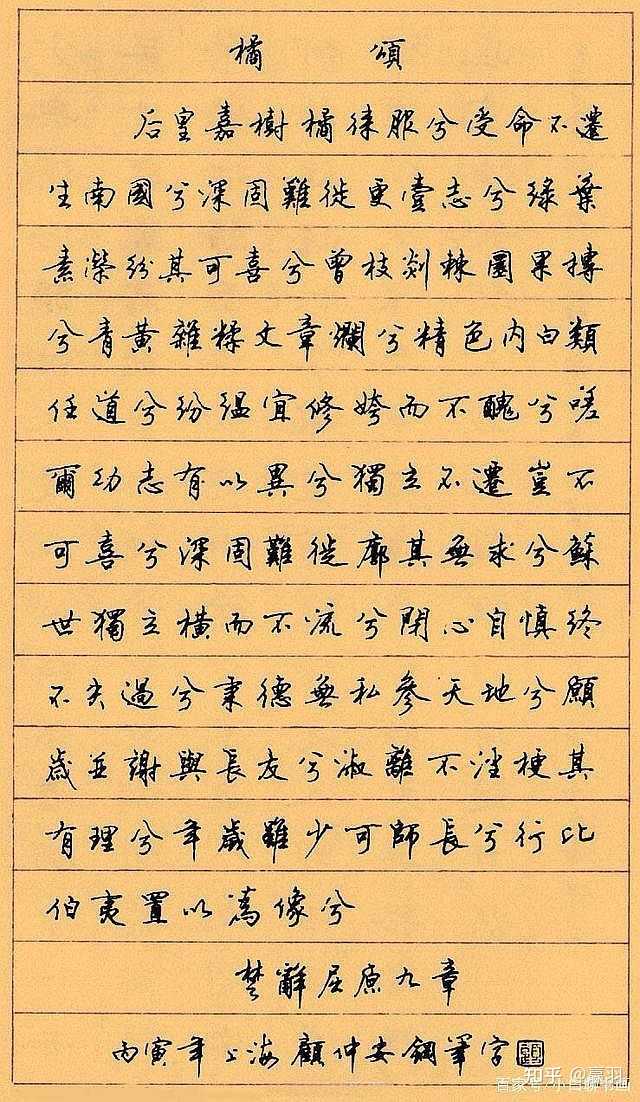 橘頌
后皇嘉樹橘徠服兮受命不遷
生南國兮深固難徙更壹志兮綠葉
素榮紛其可喜兮曾枝剡棘圜果摶
兮青黃雜糅文章爛兮精色內白類
任道兮紛縕宜修姱而不醜兮嗟
爾幼志有以異兮獨立不遷豈不
可喜兮深固難徙廓其無求兮蘇
世獨立橫而不流兮閉心自慎終
不失過兮秉德無私參天地兮願
歲並謝與長友兮淑離不淫梗其
有理兮年歲雖少可師長兮行比
伯夷置以為像兮
楚辭屈原九章
丙寅年上海顧仲安鋼筆字
知乎 @赢羽
百家号